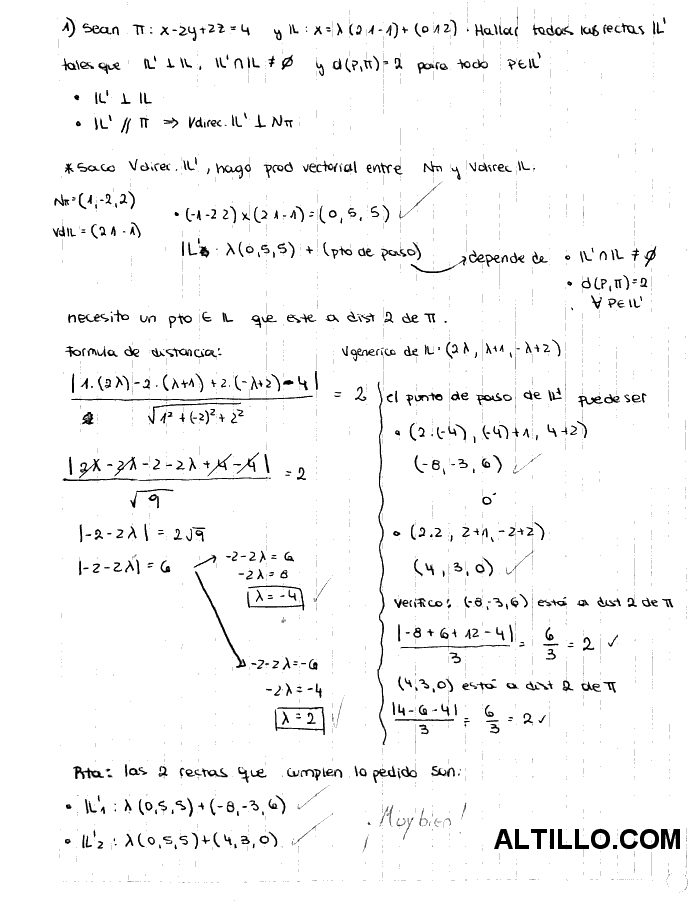 1) Sean π: x-2y+2z=4 y IL: x=λ(2 1 -1)+(0 1 2). Hallar todas las rectas IL'
tales que IL' ⊥ IL, IL' ∩ IL ≠ ∅ y d(P,π)=2 para todo P∈IL'
• IL' ⊥ IL
• IL' // π ⇒ Vdirec. IL' ⊥ Nπ
* Saco Vdirec. IL', hago prod vectorial entre Nπ y Vdirec IL.
Nπ=(1,-2,2)
VdIL = (2 1 -1)
• (-1 -2 2) x (2 1 -1) = (0, 5, 5)
IL': λ(0,5,5) + (pto de paso)
depende de • IL' ∩ IL ≠ ∅
• d(P,π)=2
∀ P∈IL'
necesito un pto ∈ IL que este a dist 2 de π.
Formula de distancia:
Vgenerico de IL: (2λ, λ+1, -λ+2)
|1.(2λ)-2.(λ+1)+2.(-λ+2)-4| = 2
√1²+(-2)²+2²
|2λ-2λ-2-2λ+4-4| = 2
√9
|-2-2λ| = 2√9
|-2-2λ| = 6
-2-2λ = 6
-2λ = 8
λ = -4
-2-2λ = -6
-2λ = -4
λ = 2
el punto de paso de IL' puede ser
• (2.(-4), (-4)+1, 4+2)
(-8, -3, 6)
o
• (2.2, 2+1, -2+2)
(4, 3, 0)
Verifico: (-8,-3,6) está a dist 2 de π
|-8+6+12-4| = 6 = 2 ✓
3 3
(4,3,0) está a dist 2 de π
|4-6-4| = 6 = 2 ✓
3 3
Rta: las 2 rectas que cumplen lo pedido son:
• IL'1 : λ(0,5,5)+(-8,-3,6)
• IL'2 : λ(0,5,5)+(4,3,0)
¡Muy bien!
ALTILLO.COM